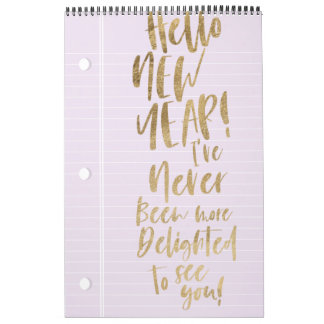 Hello
NEW
YEAR!
I've
Never
Been more
Delighted
To see
you!